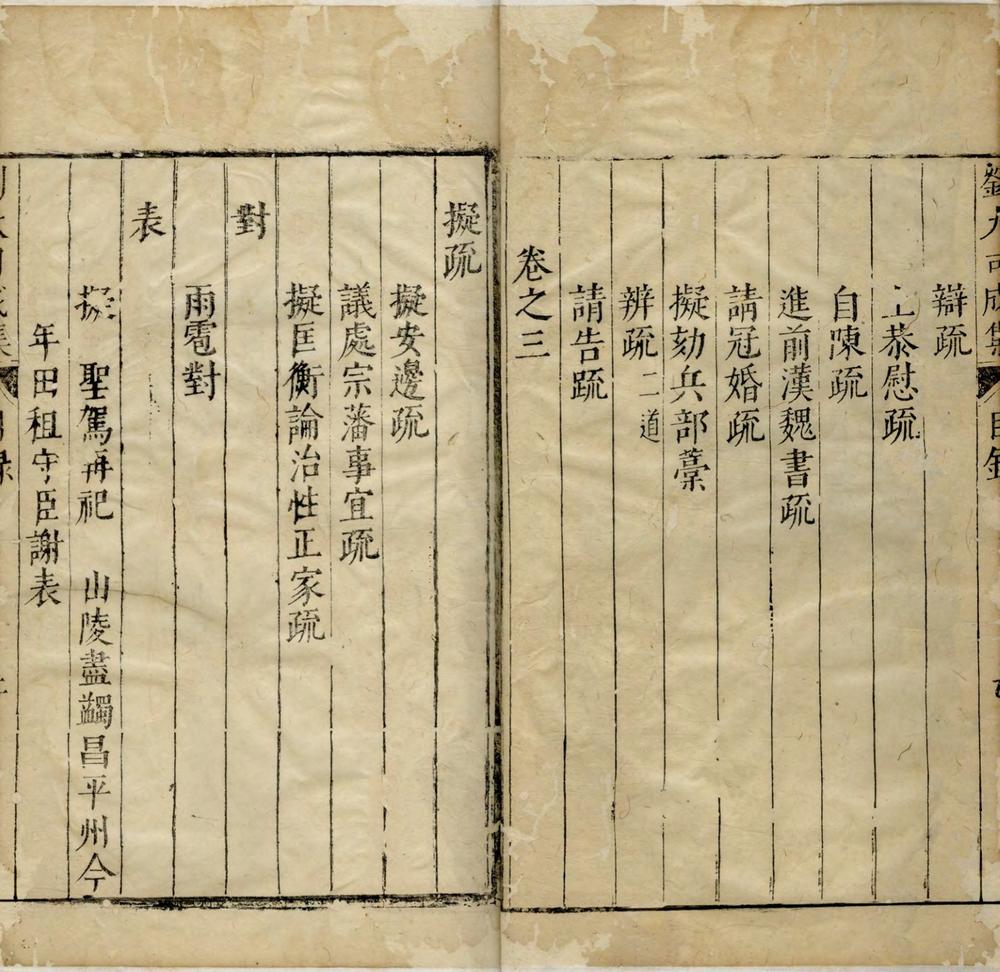 辯疏
上恭慰疏
自陳疏
進前漢魏書疏
請冠婚疏
擬劾兵部藁
辨疏二道
請告疏
卷之三
擬疏
擬安邊疏
議處宗藩事宜疏
擬匡衡論治性正家疏
對
雨雹對
表
擬 聖駕再祀 山陵盡蠲昌平州今
年田租守臣謝表